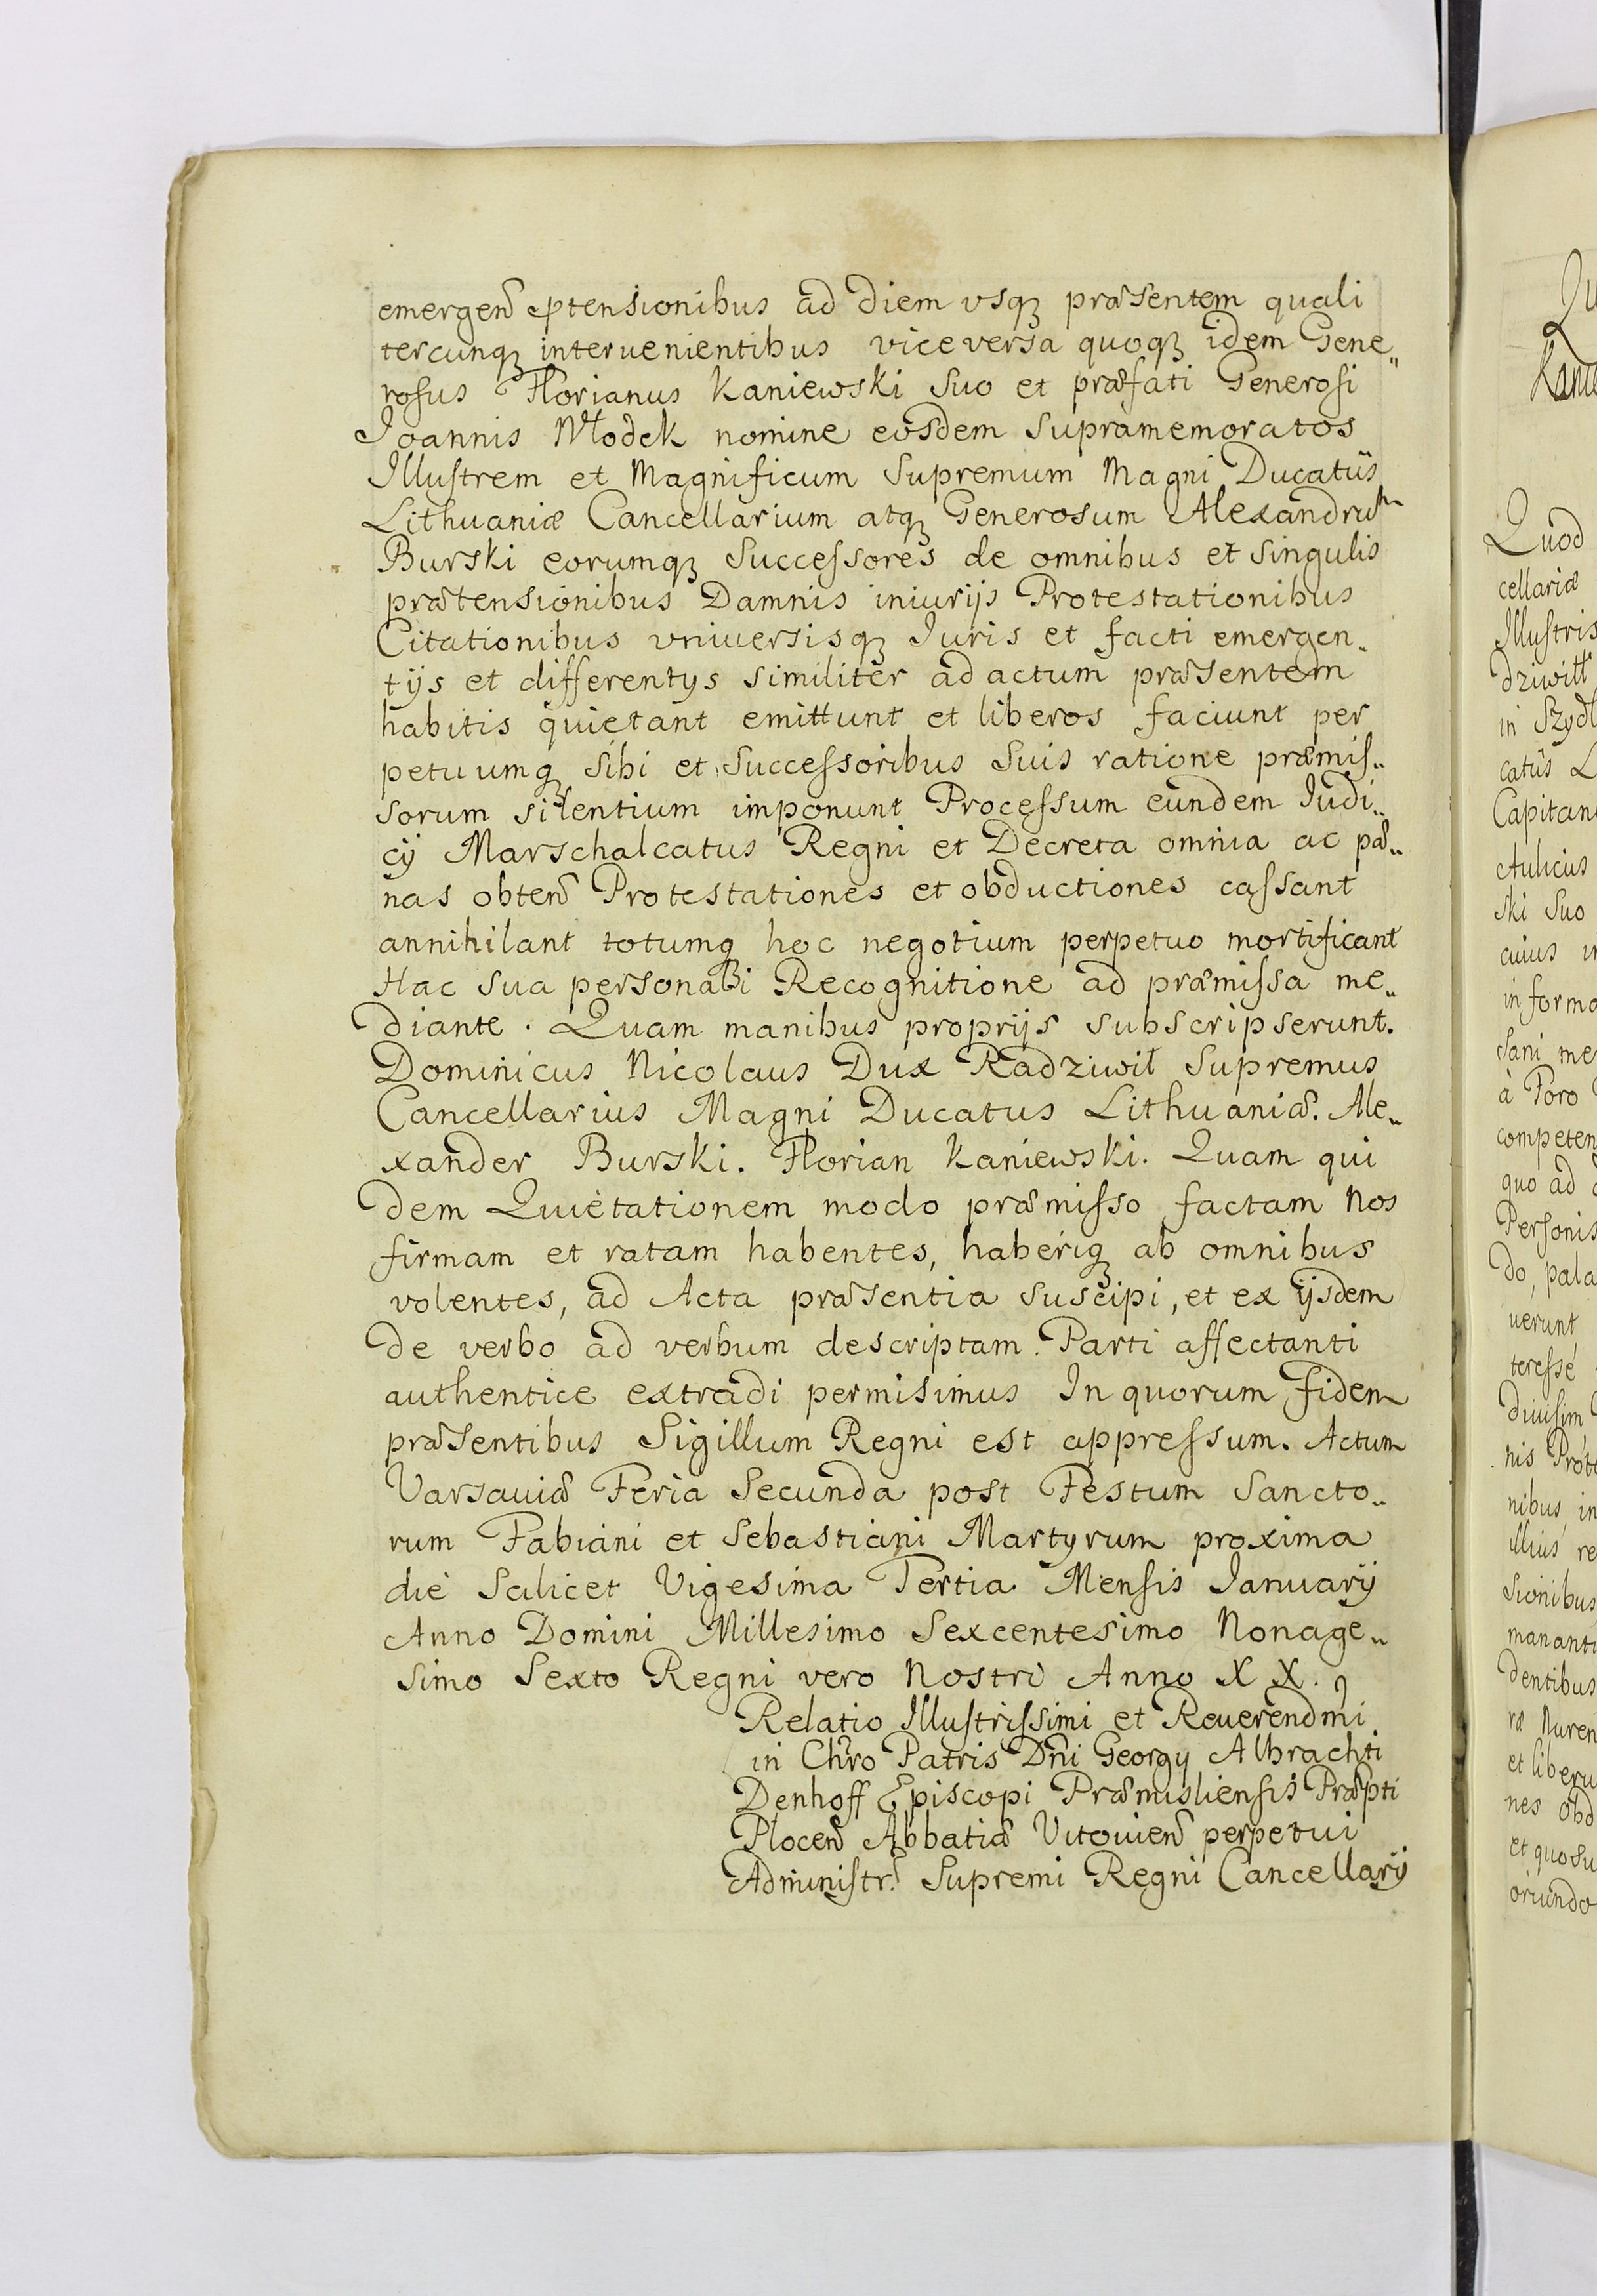 emergen̄ ꝑtensionibus ad diem vsqꝫ præsentem quali
tercunqꝫ interuenientibus viceversa quoqꝫ idem Gene„
rosus Florianus Kaniewski Suo et præfati Generosi
Joannis Młodek nomine eosdem supramemoratos
Illustrem et Magnificum Supremum Magni Ducatûs
Lithuaniæ Cancellarium atqꝫ Generosum Alexandrum
Burski eorumqꝫ Successores de omnibus et singulis
prætensionibus Damnis iniurijs Protestationibus
Citationibus vniuersisqꝫ Iuris et facti emergen„
tijs et differentys similiter ad actum præsentem
habitis quietant emittunt et liberos faciunt per
petuumqꝫ Sibi et Successoribus Suis ratione præmis„
sorum silentium imponunt Processum eundem Iudi„
cij Marschalcatus Regni et Decreta omnia ac pæ„
nas obten̄ Protestationes et obductiones cassant
annihilant totumqꝫ hoc negotium perpetuo mortificant
Hac sua personali Recognitione ad præmissa me„
diante. Quam manibus proprijs subscripserunt.
Dominicus Nicolaus Dux Radziwił Supremus
Cancellarius Magni Ducatus Lithuaniæ. Ale„
xander Burski. Florian Kaniewski. Quam qui
dem Quietationem modo præmisso factam Nos
firmam et ratam habentes, haberiqꝫ ab omnibus
volentes, ad Acta præsentia suscipi, et ex ijsdem
de verbo ad verbum descriptam. Parti affectanti
authentice extradi permisimus In quorum fidem
præsentibus Sigillum Regni est appressum. Actum
Varsauiæ Feria Secunda post Festum Sancto„
rum Fabiani et Sebastiani Martyrum proxima
die Scilicet Vigesima Tertia Mensis Ianuarij
Anno Domini Millesimo Sexcentesimo Nonage„
simo Sexto Regni vero Nostri Anno XX.
Relatio Illustrissimi et Reuerendmi
in Chro Patris Dni Georgy Albrachti
Denhoff Episcopi Præmisliensis Præpti
Plocen̄ Abbatiæ Vitouien̄ perpetui
Administr̄ Supremi Regni Cancellarij
Quod
cellariæ
Illustris
dziwiłł
in Szydł
catûs L
Capitan
Aulicus
ski Suo
cuius in
in forma
sani me
à Foro
competen
quo ad
Personis
do, pala
uerunt
teresse
diuisim
nis Prot
nibus in
illius re
sionibus
mananti
dentibus
et liberu
nes obd
et quo su
oriundo